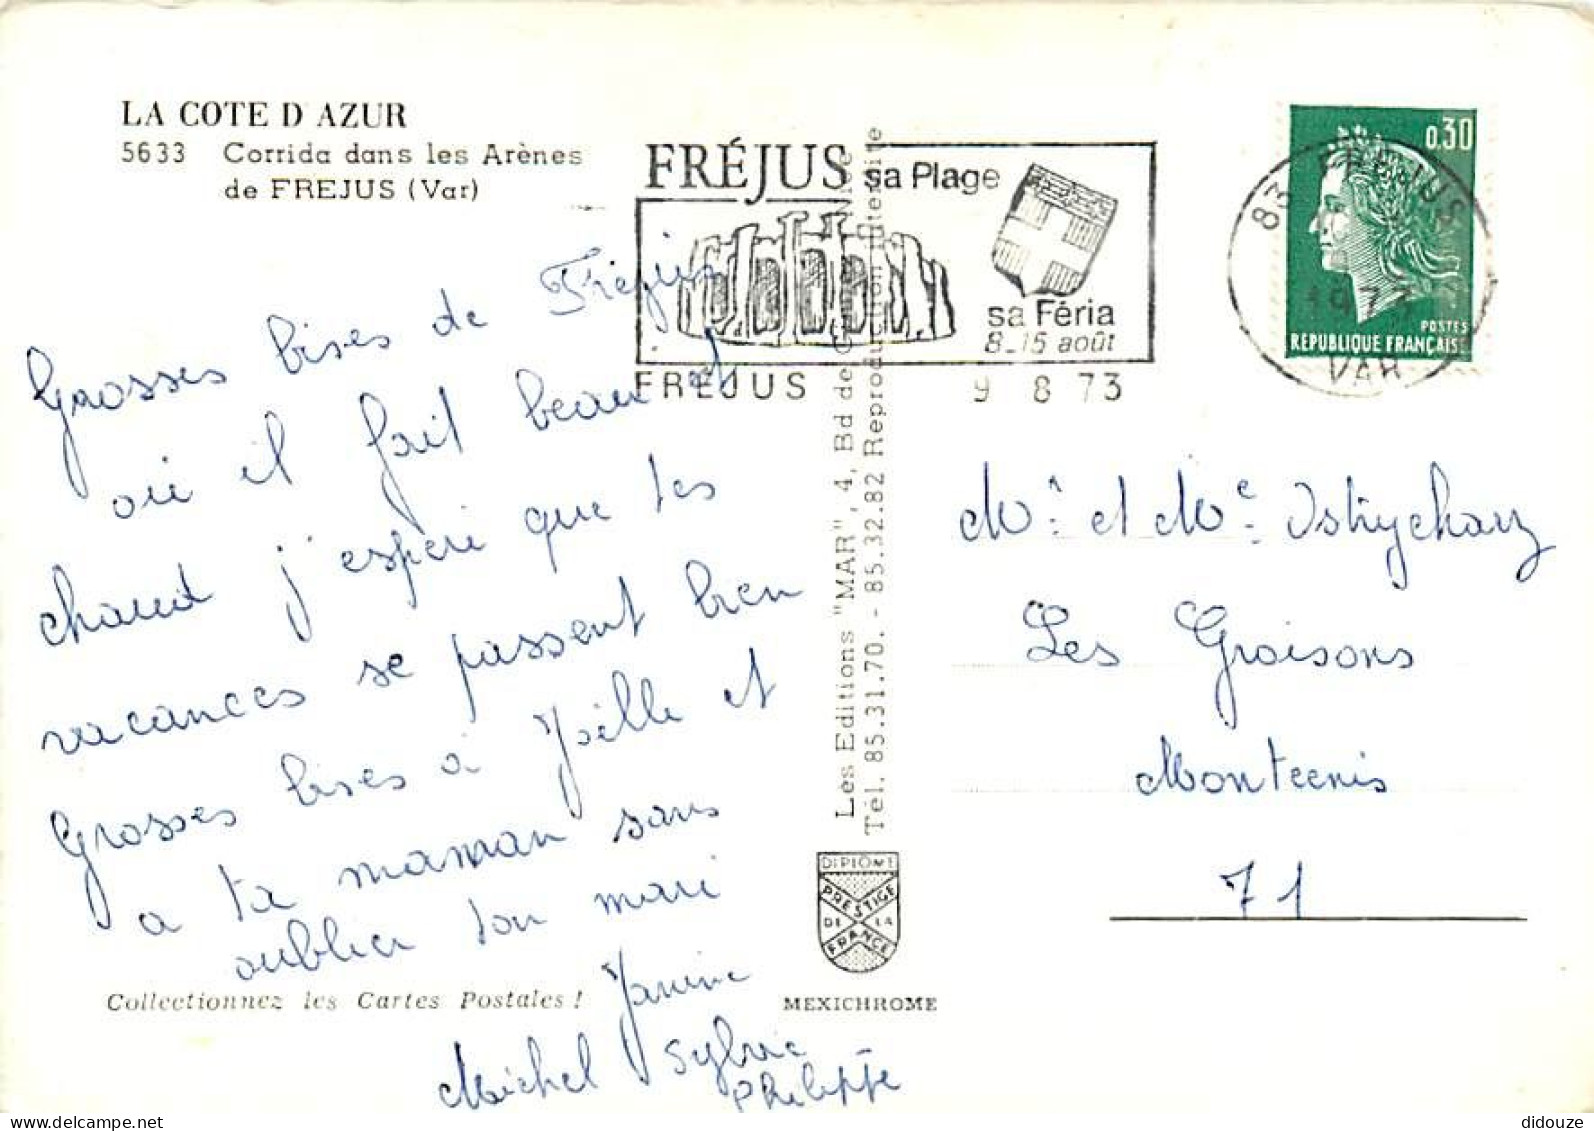 LA COTE D'AZUR
5633 Corrida dans les Arènes
de FREJUS (Var)
Grosses bises de Frejus
où il fait beau et
chaud j'espere que tes
vacances se passent bien
Grosses bises à Joëlle et
a ta maman sans
oublier ton mari
Janine
Michel Sylvie
Philippe
Collectionnez les Cartes Postales !
FRÉJUS sa Plage
sa Féria
8_15 août
FREJUS 9 8 73
Les Editions "MAR", 4, Bd de Nice
Tél. 85.31.70. - 85.32.82 Reproduction interdite
DIPLÔME
PRESTIGE
DE LA
FRANCE
MEXICHROME
0,30
POSTES
REPUBLIQUE FRANÇAISE
83 FREJUS
1973
VAR
Mr et Me Ostrycharz
Les Groisons
Montcenis
71
didouze